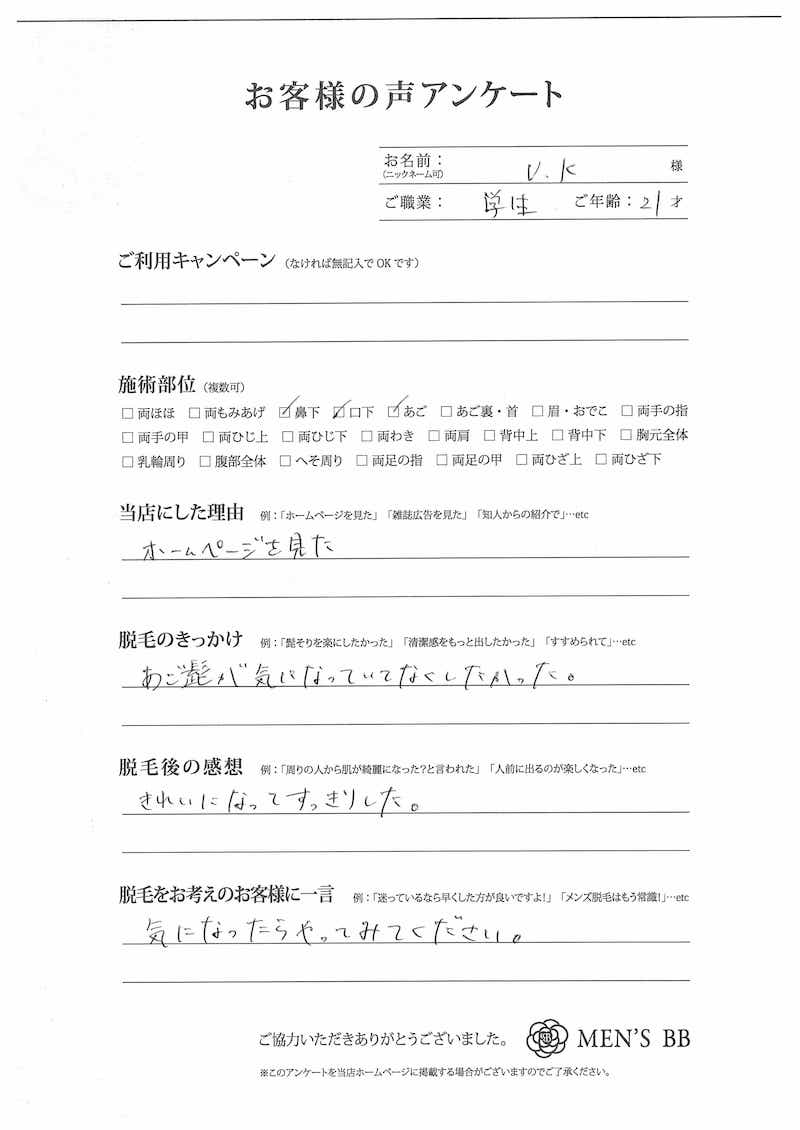 お客様の声アンケート
お名前： U.K 様
（ニックネーム可）
ご職業： 学生 ご年齢：21才
ご利用キャンペーン（なければ無記入でOKです）
施術部位（複数可）
□両ほほ □両もみあげ ☑鼻下 ☑口下 ☑あご □あご裏・首 □眉・おでこ □両手の指
□両手の甲 □両ひじ上 □両ひじ下 □両わき □両肩 □背中上 □背中下 □胸元全体
□乳輪周り □腹部全体 □へそ周り □両足の指 □両足の甲 □両ひざ上 □両ひざ下
当店にした理由 例：「ホームページを見た」「雑誌広告を見た」「知人からの紹介で」…etc
ホームページを見た
脱毛のきっかけ 例：「髭そりを楽にしたかった」「清潔感をもっと出したかった」「すすめられて」…etc
あご髭が気になっていてなくしたかった。
脱毛後の感想 例：「周りの人から肌が綺麗になった？と言われた」「人前に出るのが楽しくなった」…etc
きれいになってすっきりした。
脱毛をお考えのお客様に一言 例：「迷っているなら早くした方が良いですよ！」「メンズ脱毛はもう常識！」…etc
気になったらやってみてください。
ご協力いただきありがとうございました。 MEN'S BB
※このアンケートを当店ホームページに掲載する場合がございますのでご了承ください。